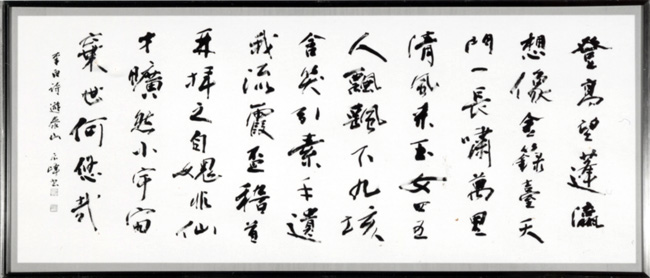 登高望蓬瀛
想像金銀臺天
門一長嘯萬里
清風來玉女四五
人飄飄下九垓
含笑引素手遺
我流霞盃稽首
再拜之自愧非仙
才曠然小宇宙
棄世何悠哉
李白詩 遊泰山